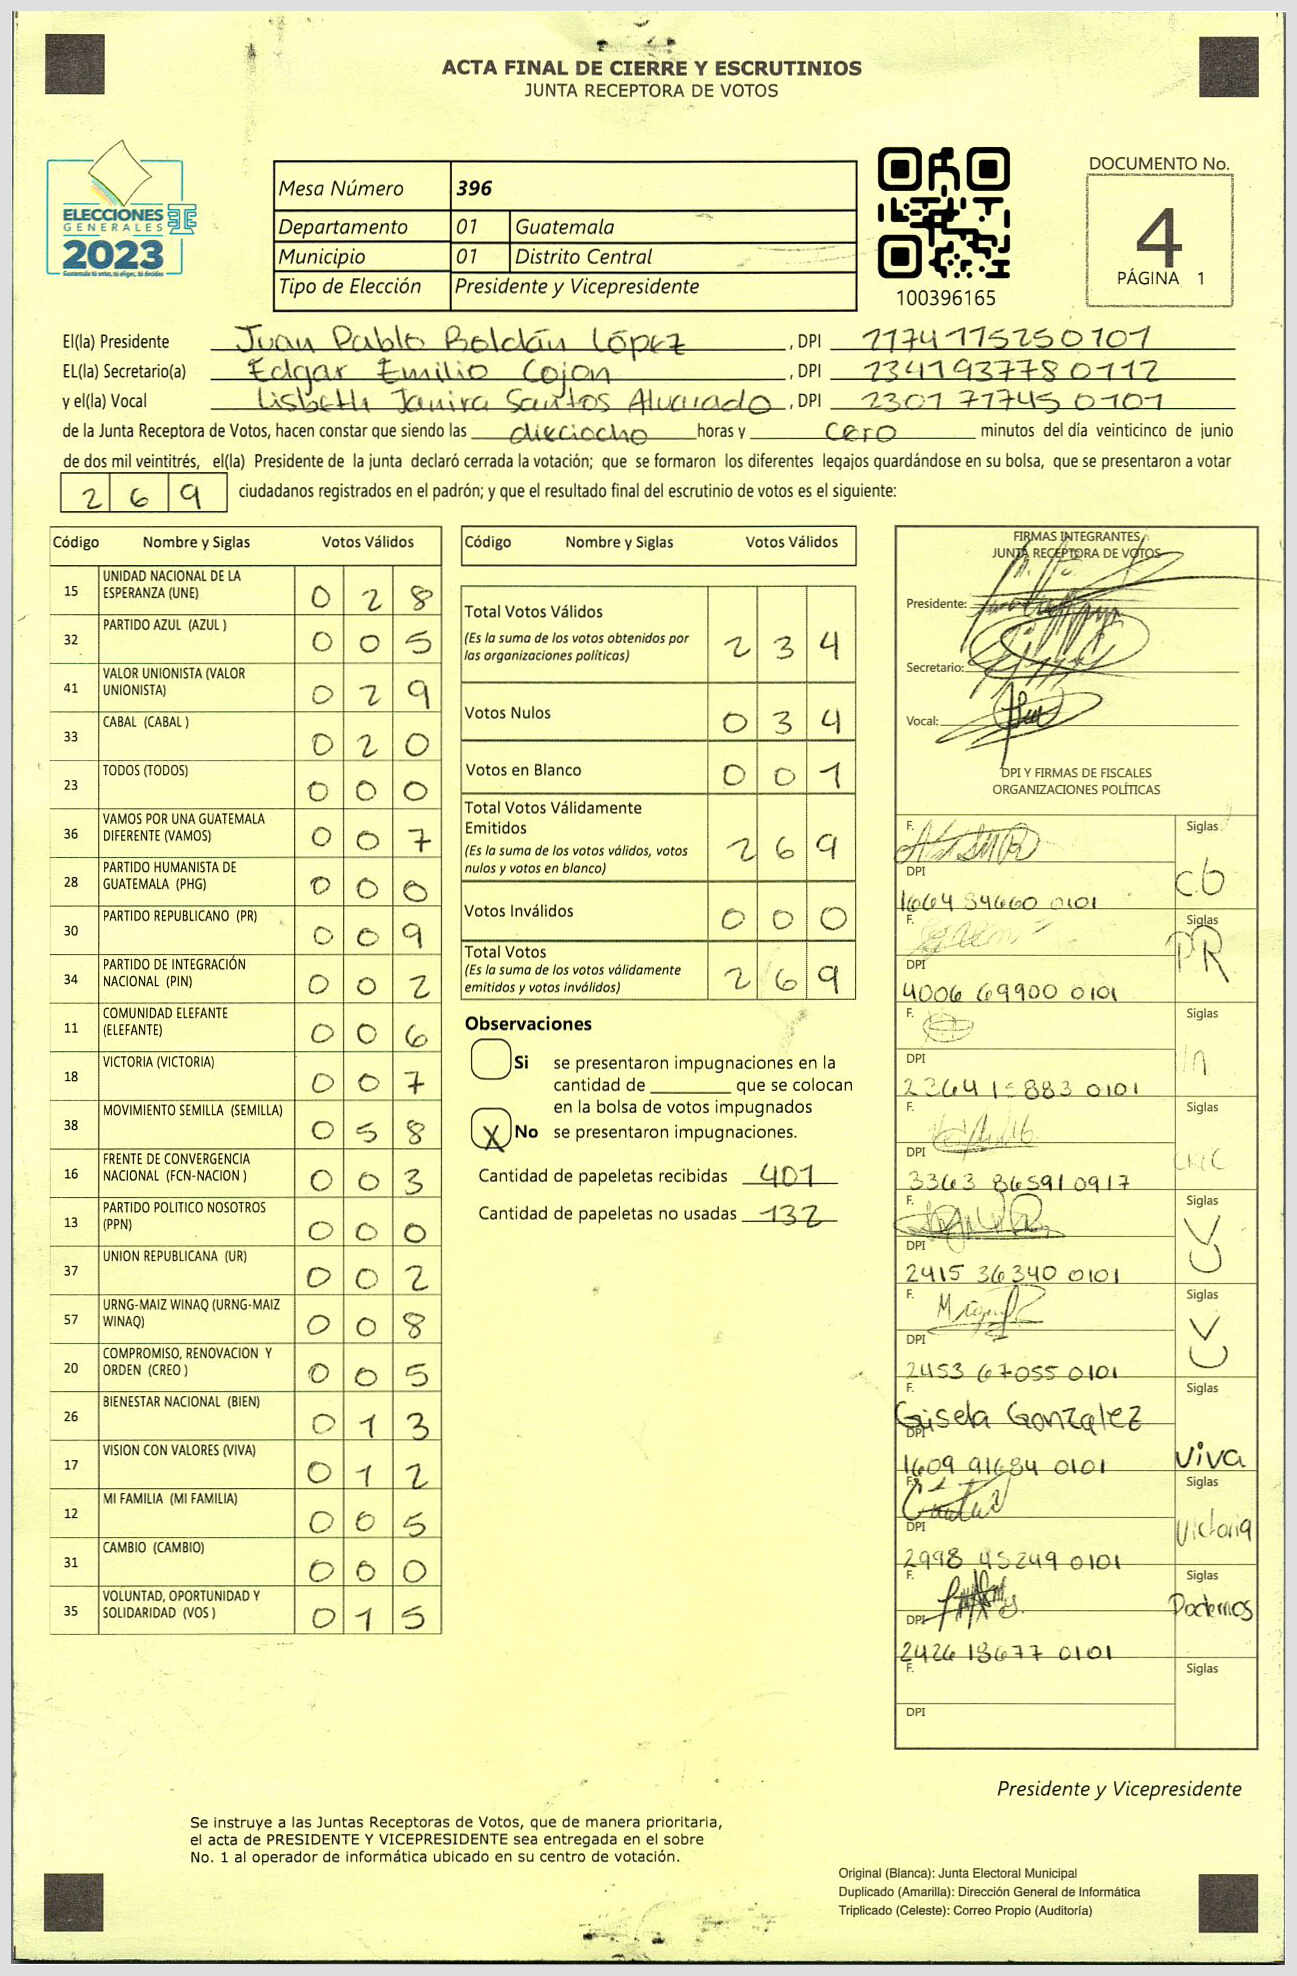 ACTA FINAL DE CIERRE Y ESCRUTINIOS
JUNTA RECEPTORA DE VOTOS
ELECCIONES
GENERALES
2023
Mesa Número 396
Departamento 01 Guatemala
Municipio 01 Distrito Central
Tipo de Elección Presidente y Vicepresidente
100396165
DOCUMENTO No.
4
PÁGINA 1
El(la) Presidente Juan Pablo Roldán López, DPI 2174175250101
EL(la) Secretario(a) Edgar Emilio Cojon, DPI 2341937780112
y el(la) Vocal Lisbeth Janira Santos Alvarado, DPI 2301717450101
de la Junta Receptora de Votos, hacen constar que siendo las dieciocho horas y cero minutos del día veinticinco de junio
de dos mil veintitrés, el(la) Presidente de la junta declaró cerrada la votación; que se formaron los diferentes legajos guardándose en su bolsa, que se presentaron a votar
269 ciudadanos registrados en el padrón; y que el resultado final del escrutinio de votos es el siguiente:
Código Nombre y Siglas Votos Válidos
15 UNIDAD NACIONAL DE LA ESPERANZA (UNE) 028
32 PARTIDO AZUL (AZUL ) 005
41 VALOR UNIONISTA (VALOR UNIONISTA) 029
33 CABAL (CABAL ) 020
23 TODOS (TODOS) 000
36 VAMOS POR UNA GUATEMALA DIFERENTE (VAMOS) 007
28 PARTIDO HUMANISTA DE GUATEMALA (PHG) 000
30 PARTIDO REPUBLICANO (PR) 009
34 PARTIDO DE INTEGRACIÓN NACIONAL (PIN) 002
11 COMUNIDAD ELEFANTE (ELEFANTE) 006
18 VICTORIA (VICTORIA) 007
38 MOVIMIENTO SEMILLA (SEMILLA) 058
16 FRENTE DE CONVERGENCIA NACIONAL (FCN-NACION ) 003
13 PARTIDO POLITICO NOSOTROS (PPN) 000
37 UNION REPUBLICANA (UR) 002
57 URNG-MAIZ WINAQ (URNG-MAIZ WINAQ) 008
20 COMPROMISO, RENOVACION Y ORDEN (CREO ) 005
26 BIENESTAR NACIONAL (BIEN) 013
17 VISION CON VALORES (VIVA) 012
12 MI FAMILIA (MI FAMILIA) 005
31 CAMBIO (CAMBIO) 000
35 VOLUNTAD, OPORTUNIDAD Y SOLIDARIDAD (VOS ) 015
Código Nombre y Siglas Votos Válidos
Total Votos Válidos 234
(Es la suma de los votos obtenidos por
las organizaciones políticas)
Votos Nulos 034
Votos en Blanco 001
Total Votos Válidamente
Emitidos 269
(Es la suma de los votos válidos, votos
nulos y votos en blanco)
Votos Inválidos 000
Total Votos 269
(Es la suma de los votos válidamente
emitidos y votos inválidos)
Observaciones
Si se presentaron impugnaciones en la
cantidad de ________ que se colocan
en la bolsa de votos impugnados
X No se presentaron impugnaciones.
Cantidad de papeletas recibidas 401
Cantidad de papeletas no usadas 132
FIRMAS INTEGRANTES
JUNTA RECEPTORA DE VOTOS
Presidente:
Secretario:
Vocal:
DPI Y FIRMAS DE FISCALES
ORGANIZACIONES POLÍTICAS
F. Siglas
DPI
1664 94660 0101
F. Siglas PR
DPI
4006 69900 0101
F. Siglas
DPI
F. Siglas
DPI
3363 86591 0917
F. Siglas
DPI
2415 36340 0101
F. Siglas
DPI
2453 67055 0101
F. Siglas
Gisela Gonzalez
DPI
1609 91684 0101 viva
F. Siglas
DPI Victoria
2998 45249 0101
F. Siglas
DPI Podemos
2426 18677 0101
F. Siglas
DPI
Presidente y Vicepresidente
Se instruye a las Juntas Receptoras de Votos, que de manera prioritaria,
el acta de PRESIDENTE Y VICEPRESIDENTE sea entregada en el sobre
No. 1 al operador de informática ubicado en su centro de votación.
Original (Blanca): Junta Electoral Municipal
Duplicado (Amarilla): Dirección General de Informática
Triplicado (Celeste): Correo Propio (Auditoría)